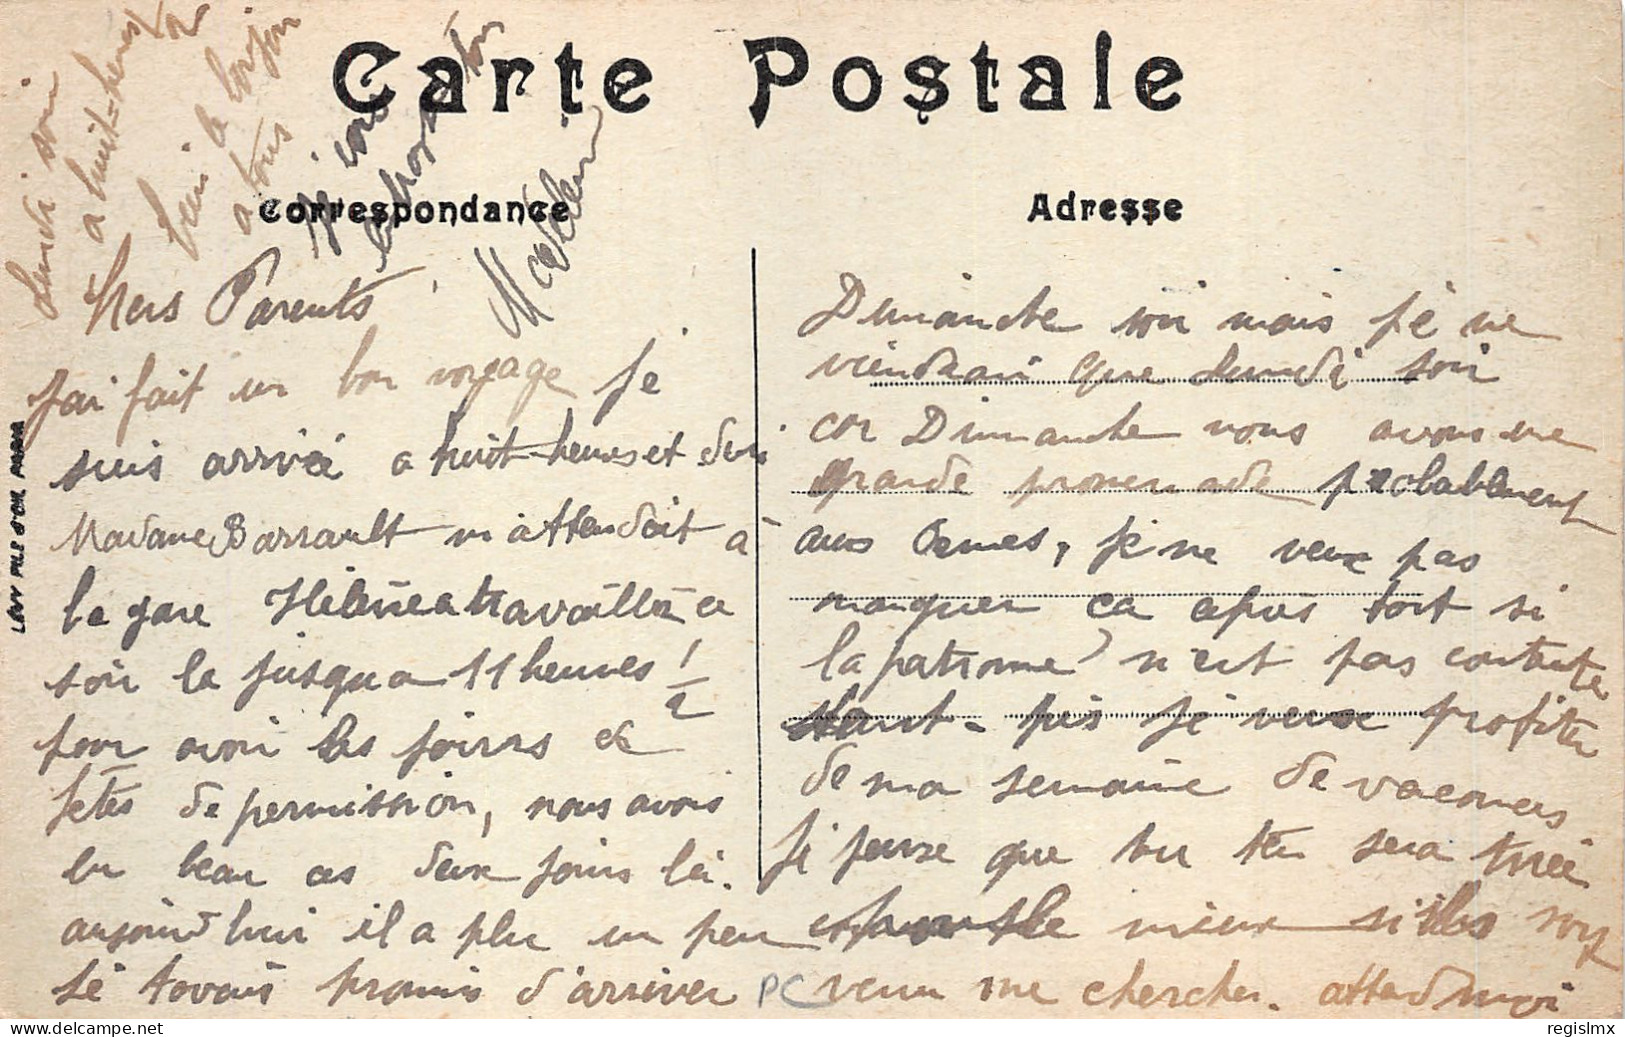 Carte Postale
Correspondance
Adresse
Chers Parents
J'ai fait un bon voyage je
suis arrivée a huit heures et demi
Madame Barrault m'attendait à
la gare Hélène a travaillé a
soir la jusqu a 11 heures 1/2
pour avoir les jours de
fêtes de permission, nous avons
eu beau ces deux jours là.
aujourd'hui il a plu un peu
je tavais promis d'arriver
Dimanche soir mais je ne
viendrai que Lundi soir
car Dimanche nous avons une
grande promenade probablement
aux Ormes, je ne veux pas
manquer ça apus tort si
la patronne n'est pas contente
tant - pis je veux profiter
de ma semaine de vacances
Je pense que tu ten sera tirée
mieux si les roux
PC venu me chercher. attend moi
Lundi soir
a huit=heures
bien le bonjour
a tous
Madeleine
LÉVY FILS & Cie, PARIS
regislmx